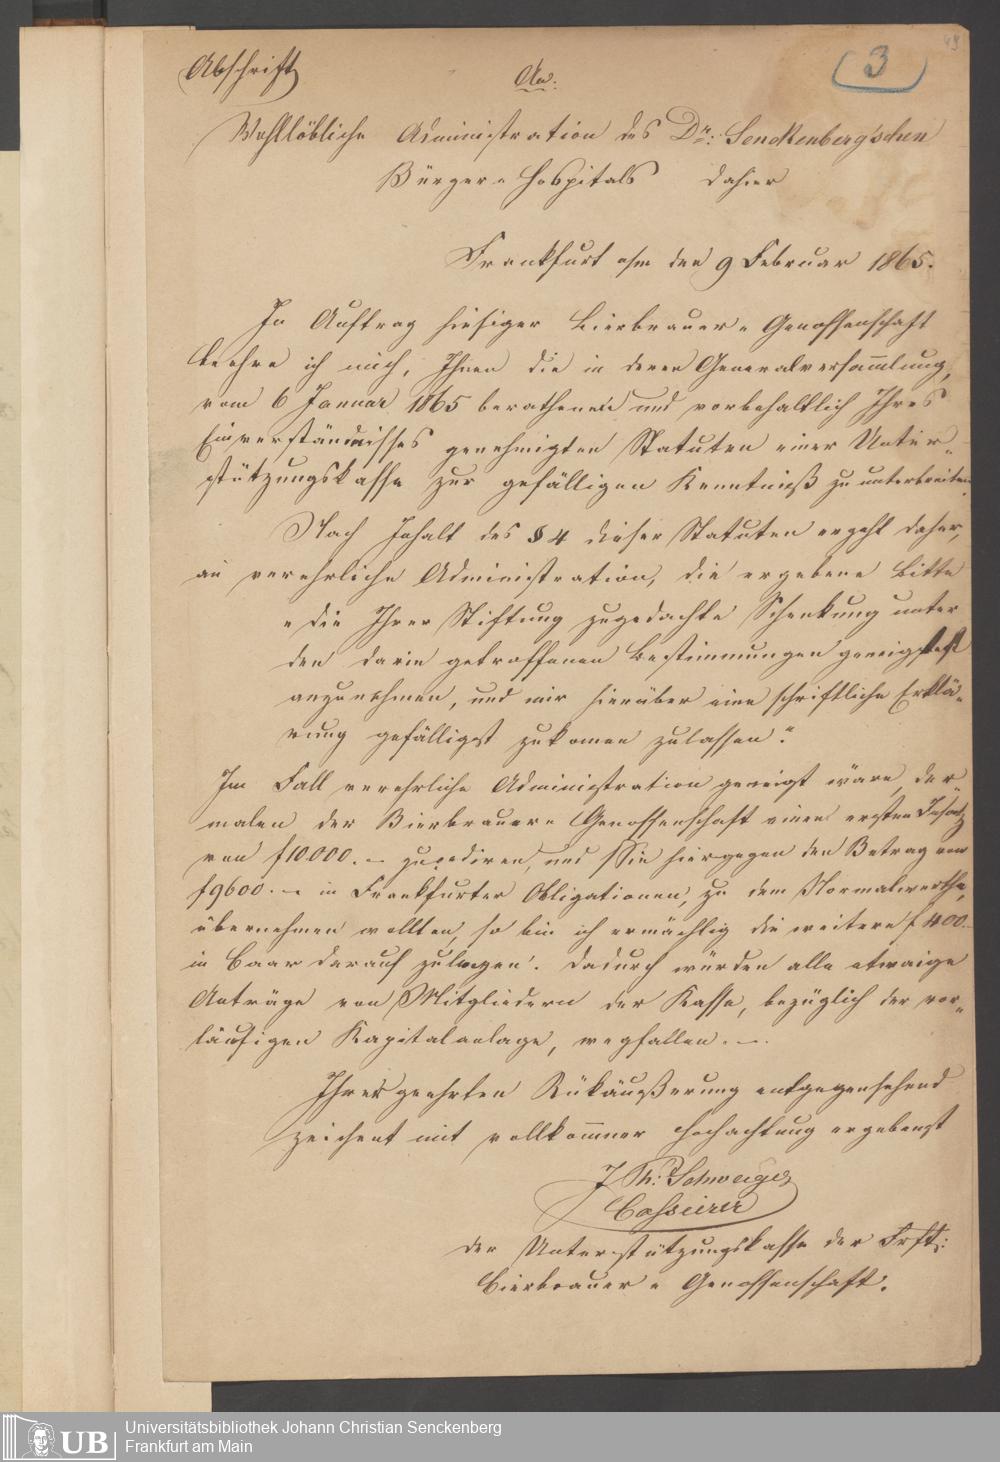 49
Abschrift
An:
3
Wohllöbliche Administration des Dr: Senckenberg'schen
Bürger-Hospitals dahier
Frankfurt a/m den 9 Februar 1865.
Im Auftrag hiesiger Bierbrauer-Genossenschaft
beehre ich mich, Ihnen die in deren Generalversam̄lung,
vom 6 Januar 1865 berathenen und vorbehaltlich Ihres
Einverständnisses genehmigten Statuten einer Unter-
stützungskasse zur gefälligen Kenntniß zu unterbreiten.
Nach Inhalt des § 4 dieser Statuten ergeht daher,
an verehrliche Administration, die ergebene Bitte
"die Ihrer Stiftung zugedachte Schenkung unter
den darin getroffenen Bestimmungen geneigtest
anzunehmen, und mir hierüber eine schriftliche Erklä-
rung gefälligst zukomen zulassen."
Im Fall verehrliche Administration geneigt wäre, der-
malen der Bierbrauer-Genossenschaft einen ersten Insatz
von f 10.000.- zu cediren, und Sie hiergegen den Betrag von
f 9600.- in Frankfurter Obligationen, zu dem Normalwerthe,
übernehmen wollten, so bin ich ermächtig die weitere f 400.-
in baar darauf zulegen. Dadurch würden alle etwaige
Anträge von Mitgliedern der Kasse, bezüglich der vor-
läufigen Kapitalanlage, wegfallen.-.
Ihrer geehrten Rükäußerung entgegensehend
zeichent mit vollkom̄ner Hochachtung ergebenst
J Th: Schweiger
Cassierer
der Unterstützungskasse der Frft:
Bierbrauer-Genossenschaft.
UB
Universitätsbibliothek Johann Christian Senckenberg
Frankfurt am Main